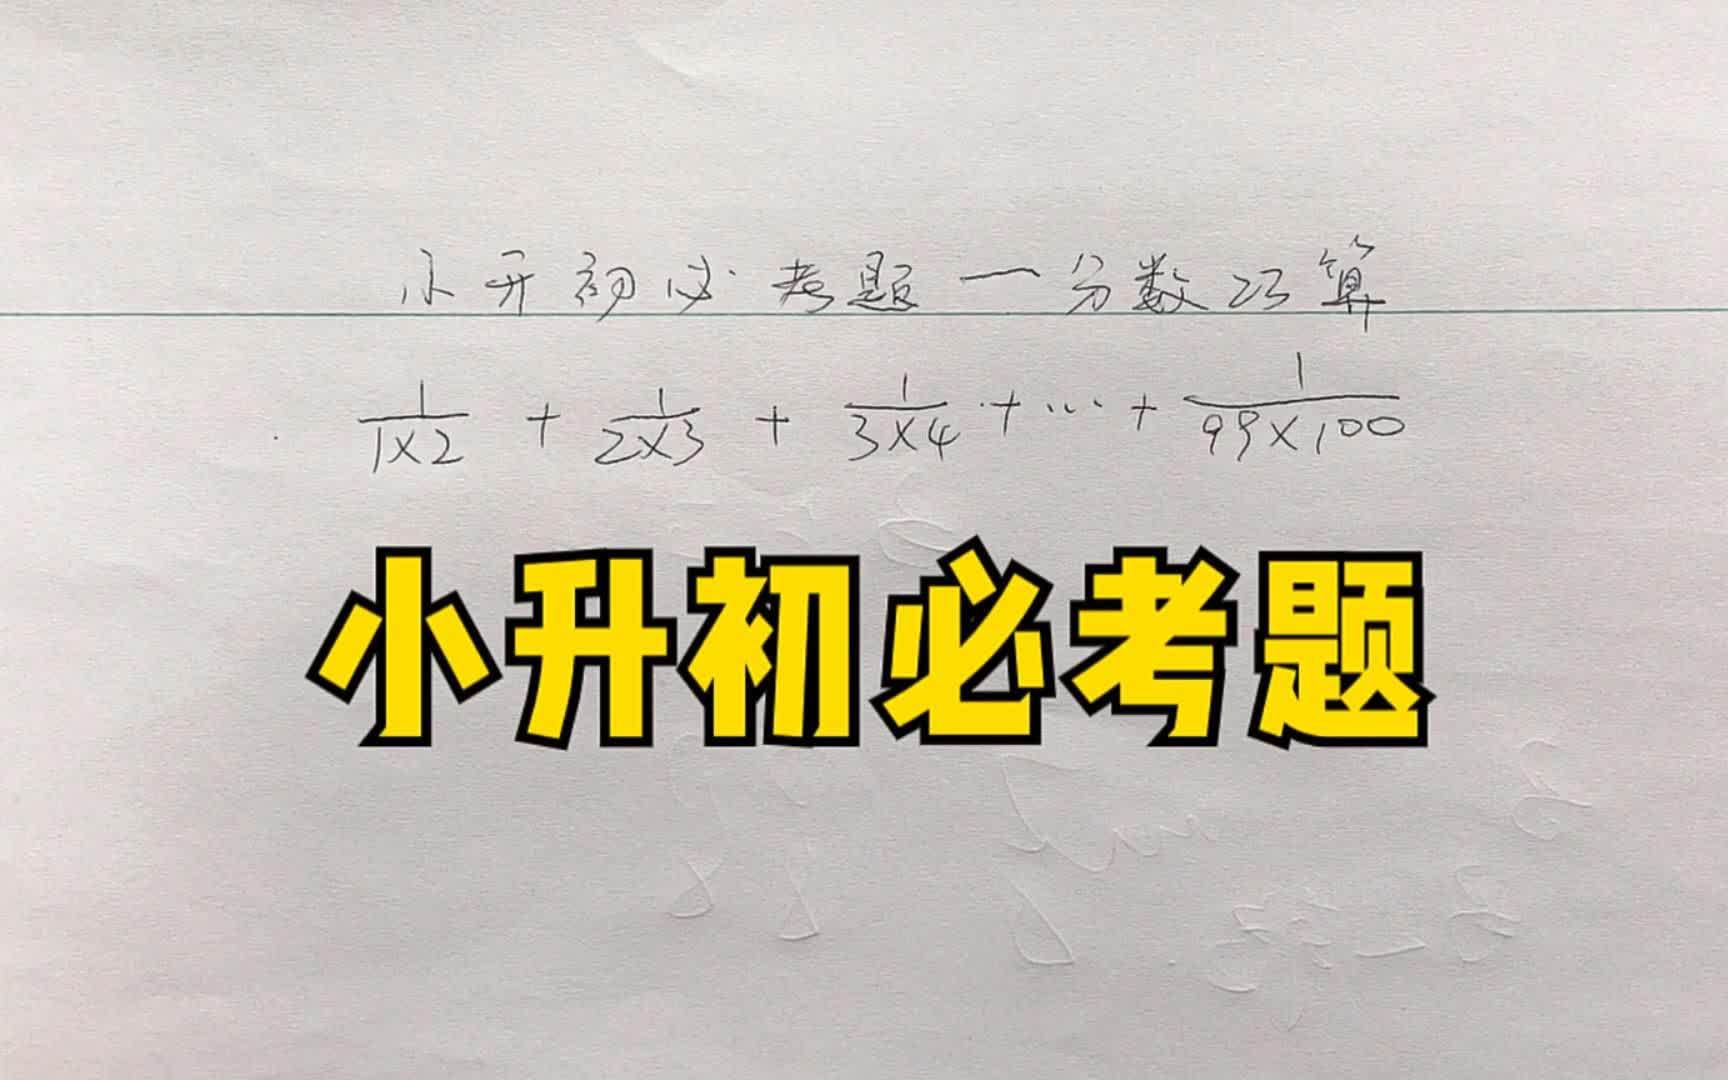 小升初必考题一分数巧算
1/1×2 + 1/2×3 + 1/3×4 + ... + 1/99×100
小升初必考题